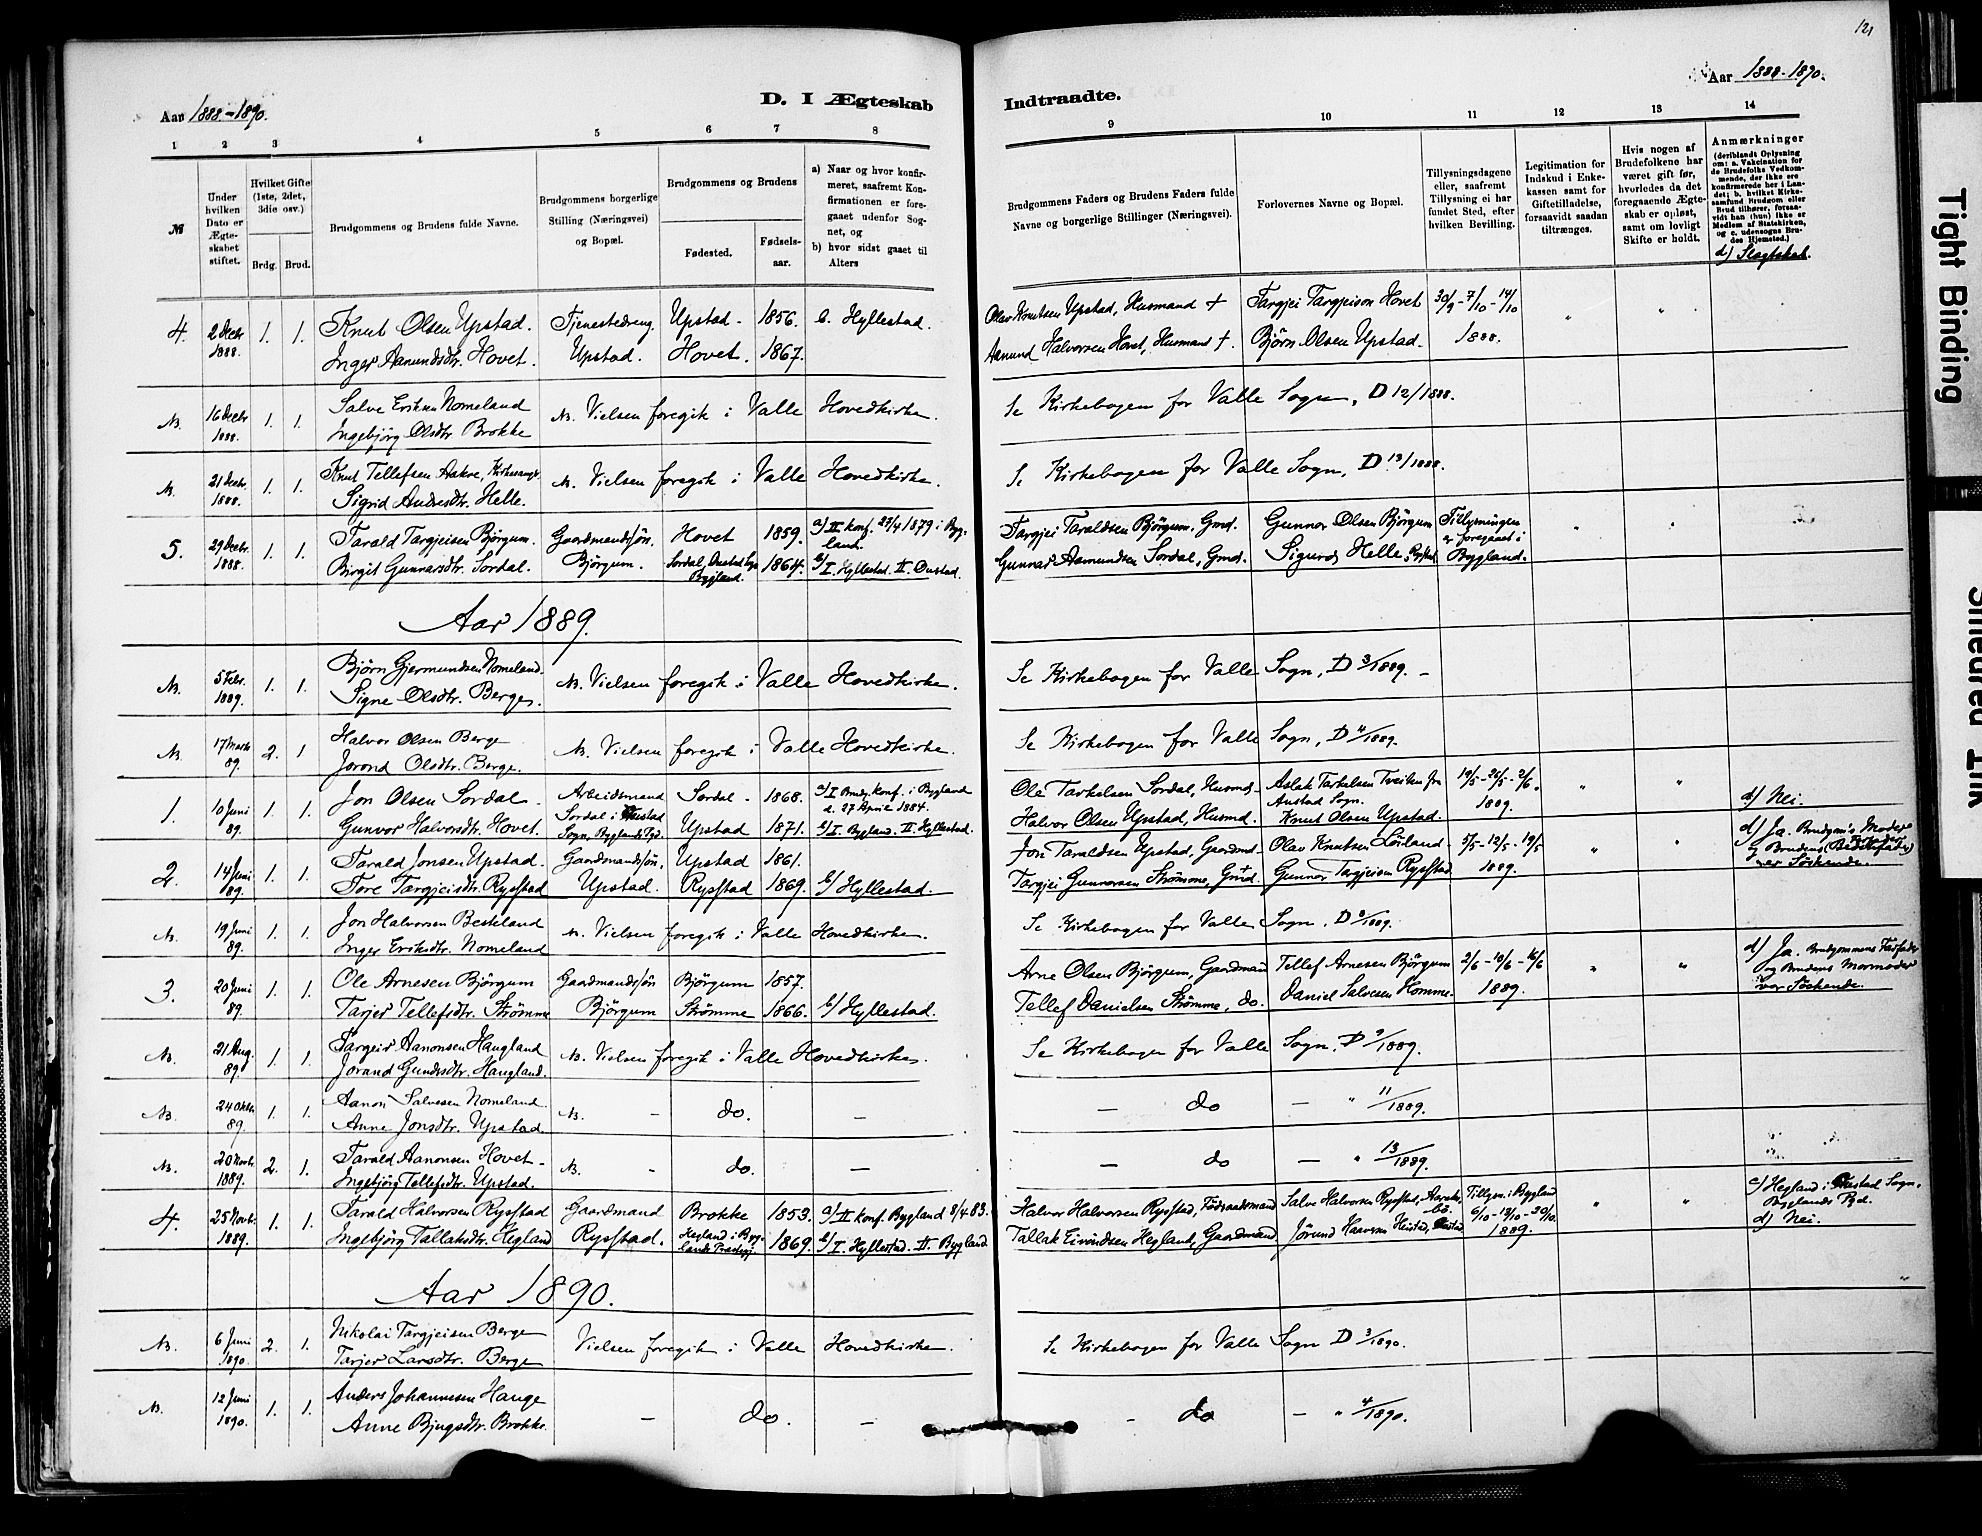 121
Aar 1888.-1890.
D. I Ægteskab
1 2 3 4 5 6 7 8
№
Under hvilken Dato er Ægteskabet stiftet.
Hvilket Gifte (1ste, 2det, 3die osv.)
Brdg. Brud.
Brudgommens og Brudens fulde Navne.
Brudgommens borgerlige Stilling (Næringsvei) og Bopæl.
Brudgommens og Brudens
Fødested.
Fødselsaar.
a) Naar og hvor konfirmeret, saafremt Konfirmationen er foregaaet udenfor Sognet, og
b) hvor sidst gaaet til Alters
4. 2 Decbr 1888. 1. 1. Knut Olsen Upstad. Tjenestedreng Upstad. 1856. b. Hyllestad.
Inger Aamundsdtr. Hovet. Upstad. Hovet. 1867.
NB. 16 Decbr 1888. 1. 1. Salve Eriksen Nomeland NB. Vielsen foregik i Valle Hovedkirke.
Ingebjörg Olsdtr Brokke
NB. 21 Decbr. 1888. 1. 1. Knut Tellefsen Aakre, Kirkesangr. NB. Vielsen foregik i Valle Hovedkirke.
Sigrid Andresdtr. Helle.
5. 29 Decbr. 1888. 1. 1. Tarald Targjeisen Björgum. Gaardmandssön. Hovet 1859. a/ II konf. 27/4 1879 i Bygland.
Birgit Gunnarsdtr. Sordal. Björgum. Sordal, Oustad Sogn Bygland. 1864. b/ I. Hyllestad. II. Oustad.
Aar 1889.
NB. 5 Febr. 1889. 1. 1. Björn Gjermundsen Nomeland. NB. Vielsen foregik i Valle Hovedkirke.
Signe Olsdtr. Berge.
NB. 17 Marts 89. 2. 1 Halvor Olsen Berge NB. Vielsen foregik i Valle Hovedkirke.
Jorond Olsdtr. Berge.
1. 10 Juni 89. 1. 1. Jon Olsen Sordal. Arbeidsmand Sordal. 1868. a/ I Brudg. konf. i Bygland d. 27 April 1884.
Gunvor Halvorsdtr. Hovet. Sordal i Austad Sogn, Byglands Pgd. Upstad 1871. b/ I. Bygland. II. Hyllestad.
2. 14 Juni 89. 1. 1. Tarald Jonsen Upstad. Gaardmandssön, Upstad 1861.
Tore Targjeisdtr. Rysstad Upstad. Rysstad 1869. b/ Hyllestad.
NB. 19 Juni 89. 1. 1. Jon Halvorsen Besteland NB. Vielsen foregik i Valle Hovedkirke.
Inger Eriksdtr. Nomeland
3. 20 Juni 89. 1. 1. Ole Arnesen Björgum Gaardmandssön Björgum 1857.
Tarjer Tellefsdtr. Strömme Björgum Strömme 1866. b/ Hyllestad.
NB. 21 Aug. 89. 1. 1. Targeir Aanonsen Haugland NB. Vielsen foregik i Valle Hovedkirke.
Jorand Gundersdtr. Haugland.
NB. 24 Oktbr. 89. 1. 1. Aanon Salvesen Nomeland NB. - do. -
Anne Jonsdtr. Upstad.
NB. 20 Novbr. 1889. 2. 1. Tarald Aanonsen Hovet. NB. - do. -
Ingebjörg Tellefsdtr. Upstad.
4. 25 Novbr. 1889. 1. 1. Tarald Halvorsen Rysstad Gaardmand Brokke 1853. a/ II konf. Bygland 8/4.83.
Ingebjörg Tallaksdtr. Hegland Rysstad. Hegland i Byglands Præstegj. 1869. b/ I. Hyllestad. II. Bygland
Aar 1890.
NB. 6 Juni 1890. 2. 1. Nikolai Targjeisen Berge Vielsen foregik i Valle Hovedkirke.
Tarjer Larsdtr. Berge
NB. 12 Juni 1890. 1. 1. Anders Johannesen Hauge - do. -
Anne Bjugsdtr. Brokke.
Indtraadte.
Aar 1888-1890.
9 10 11 12 13 14
Brudgommens Faders og Brudens Faders fulde Navne og borgerlige Stillinger (Næringsvei).
Forlovernes Navne og Bopæl.
Tillysningsdagene eller, saafremt Tillysning ei har fundet Sted, efter hvilken Bevilling.
Legitimation for Indskud i Enkekassen samt for Giftetilladelse, forsaavidt saadan tiltrænges.
Hvis nogen af Brudefolkene har været gift før, hvorledes da det foregaaende Ægteskab er opløst, samt om lovligt Skifte er holdt.
Anmærkninger (deriblandt Oplysning om: a. Vakcination for de Brudefolks Vedkommende, der ikke ere konfirmerede her i Landet; b. hvilket Kirkesamfund Brudgom eller Brud tilhører, forsaavidt han (hun) ikke er Medlem af Statskirken, og c. udensogns Brudes Hjemsted.)
d) Slægtskab.
Olav Knutsen Upstad, Husmand † Targjei Targjeison Hovet 30/9 - 7/10 - 14/10 " "
Aamund Halvorsen Hovet, Husmand †. Björn Olsen Upstad. 1888.
Se Kirkebogen for Valle Sogn, D 12/1888.
Se Kirkebogen for Valle Sogn, D 13/1888.
Targjei Taraldsen Björgum, Gmd. Gunnar Olsen Björgum Tillysningen er foregaaet i Bygland. " "
Gunnar Aamundsen Sordal, Gmd. Sigurd Helle, Rysstad
Se Kirkebogen for Valle Sogn, D 3/1889. -
Se Kirkebogen for Valle Sogn, D 4/1889.
Ole Tarkelsen Sordal, Husmd. Aslak Tarkelsen Tveiten fra Austad Sogn. 19/5 - 26/5 - 2/6. 1889. " " d) Nei.
Halvor Olsen Upstad, Husmd. Knut Olsen Upstad.
Jon Taraldsen Upstad, Gaardmd. Olav Knutsen Löiland 5/5 - 12/5 - 19/5 1889. " " d) Ja. Brudgom's Moder og Brudens (Bedstefader) var Söskende.
Targjei Gunnarsen Strömme, Gmd. Gunnar Targjeisen Rysstad
Se Kirkebogen for Valle Sogn. D 9/1889.
Arne Olsen Björgum, Gaardman Tellef Arnesen Björgum 2/6 - 10/6 - 16/6 1889. " " d) Ja. Brudgommens Farfader og Brudens Mormoder var Söskende.
Tellef Danielsen Strömme, do. Daniel Salvesen Homme.
Se Kirkebogen for Valle Sogn. D 9/1889.
- do - " 11/1889.
- do - " 13/1889.
Halvor Halvorsen Rysstad, Födraadsmand Salve Halvorsen Rysstad, Tillysn. i Bygland 6/10 - 13/10 - 20/10. 1889. " " c/ Hegland i Austad Sogn, Byglands Pgd.
d) Nei.
Tallak Eivindsen Hegland, Gaardmand Jörund
Se Kirkebogen for Valle Sogn D 3/1890.
- do - " 4/1890.
Tight Binding
Smeared Ink